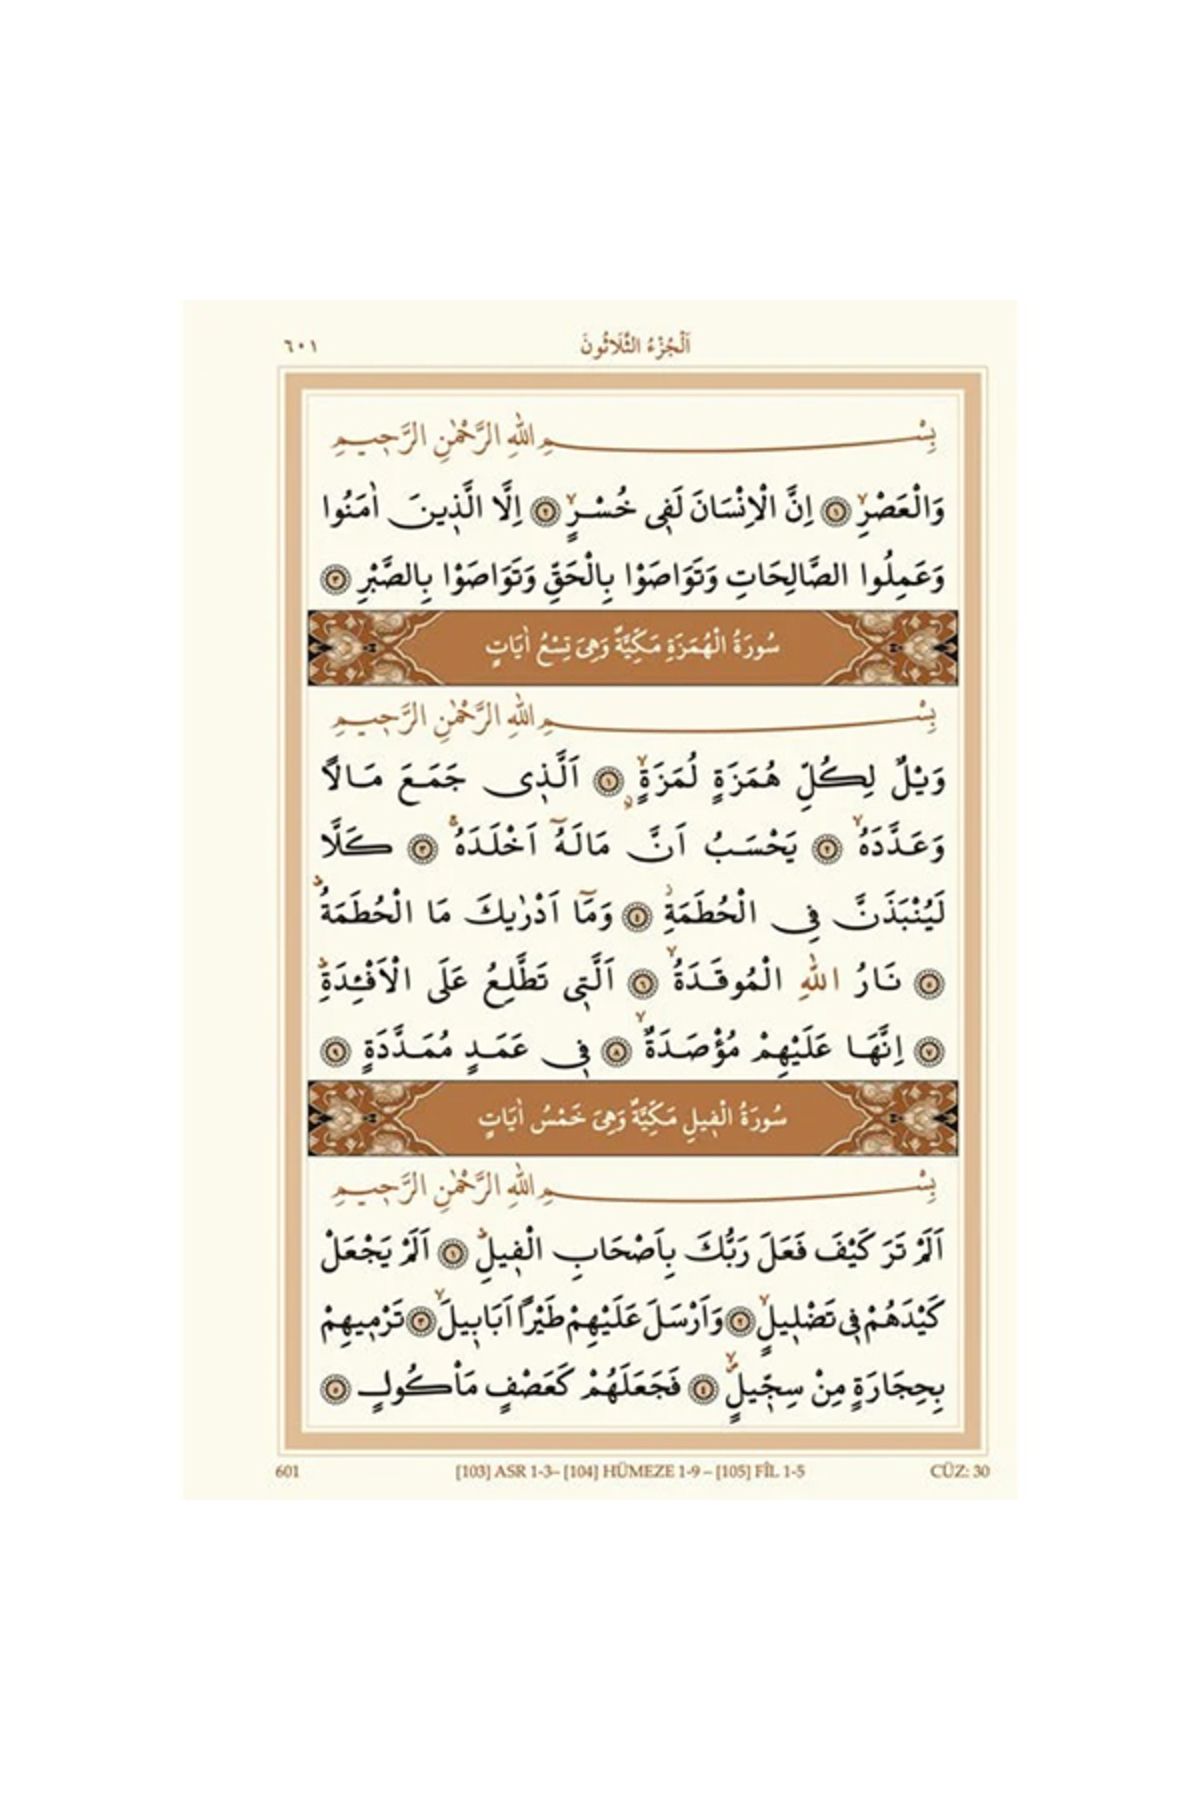 اَلْجُزْءُ الثَّلَاثُونَ ٦٠١
بِسْمِ اللّٰهِ الرَّحْمٰنِ الرَّحٖيمِ
وَالْعَصْرِۙ ﴿١﴾ اِنَّ الْاِنْسَانَ لَفٖى خُسْرٍۙ ﴿٢﴾ اِلَّا الَّذٖينَ اٰمَنُوا
وَعَمِلُوا الصَّالِحَاتِ وَتَوَاصَوْا بِالْحَقِّ وَتَوَاصَوْا بِالصَّبْرِ ﴿٣﴾
سُورَةُ الْهُمَزَةِ مَكِّيَّةٌ وَهِىَ تِسْعُ اٰيَاتٍ
بِسْمِ اللّٰهِ الرَّحْمٰنِ الرَّحٖيمِ
وَيْلٌ لِكُلِّ هُمَزَةٍ لُمَزَةٍۙ ﴿١﴾ اَلَّذٖى جَمَعَ مَالًا
وَعَدَّدَهُۙ ﴿٢﴾ يَحْسَبُ اَنَّ مَالَهُٓ اَخْلَدَهُۚ ﴿٣﴾ كَلَّا
لَيُنْبَذَنَّ فِى الْحُطَمَةِۘ ﴿٤﴾ وَمَٓا اَدْرٰيكَ مَا الْحُطَمَةُۜ
﴿٥﴾ نَارُ اللّٰهِ الْمُوقَدَةُۙ ﴿٦﴾ اَلَّتٖى تَطَّلِعُ عَلَى الْاَفْـِٔدَةِۜ
﴿٧﴾ اِنَّهَا عَلَيْهِمْ مُؤْصَدَةٌۙ ﴿٨﴾ فٖى عَمَدٍ مُمَدَّدَةٍ ﴿٩﴾
سُورَةُ الْفٖيلِ مَكِّيَّةٌ وَهِىَ خَمْسُ اٰيَاتٍ
بِسْمِ اللّٰهِ الرَّحْمٰنِ الرَّحٖيمِ
اَلَمْ تَرَ كَيْفَ فَعَلَ رَبُّكَ بِاَصْحَابِ الْفٖيلِۜ ﴿١﴾ اَلَمْ يَجْعَلْ
كَيْدَهُمْ فٖى تَضْلٖيلٍۙ ﴿٢﴾ وَاَرْسَلَ عَلَيْهِمْ طَيْرًا اَبَابٖيلَۙ ﴿٣﴾ تَرْمٖيهِمْ
بِحِجَارَةٍ مِنْ سِجّٖيلٍۙ ﴿٤﴾ فَجَعَلَهُمْ كَعَصْفٍ مَأْكُولٍ ﴿٥﴾
601 [103] ASR 1-3– [104] HÜMEZE 1-9 – [105] FÎL 1-5 CÜZ: 30